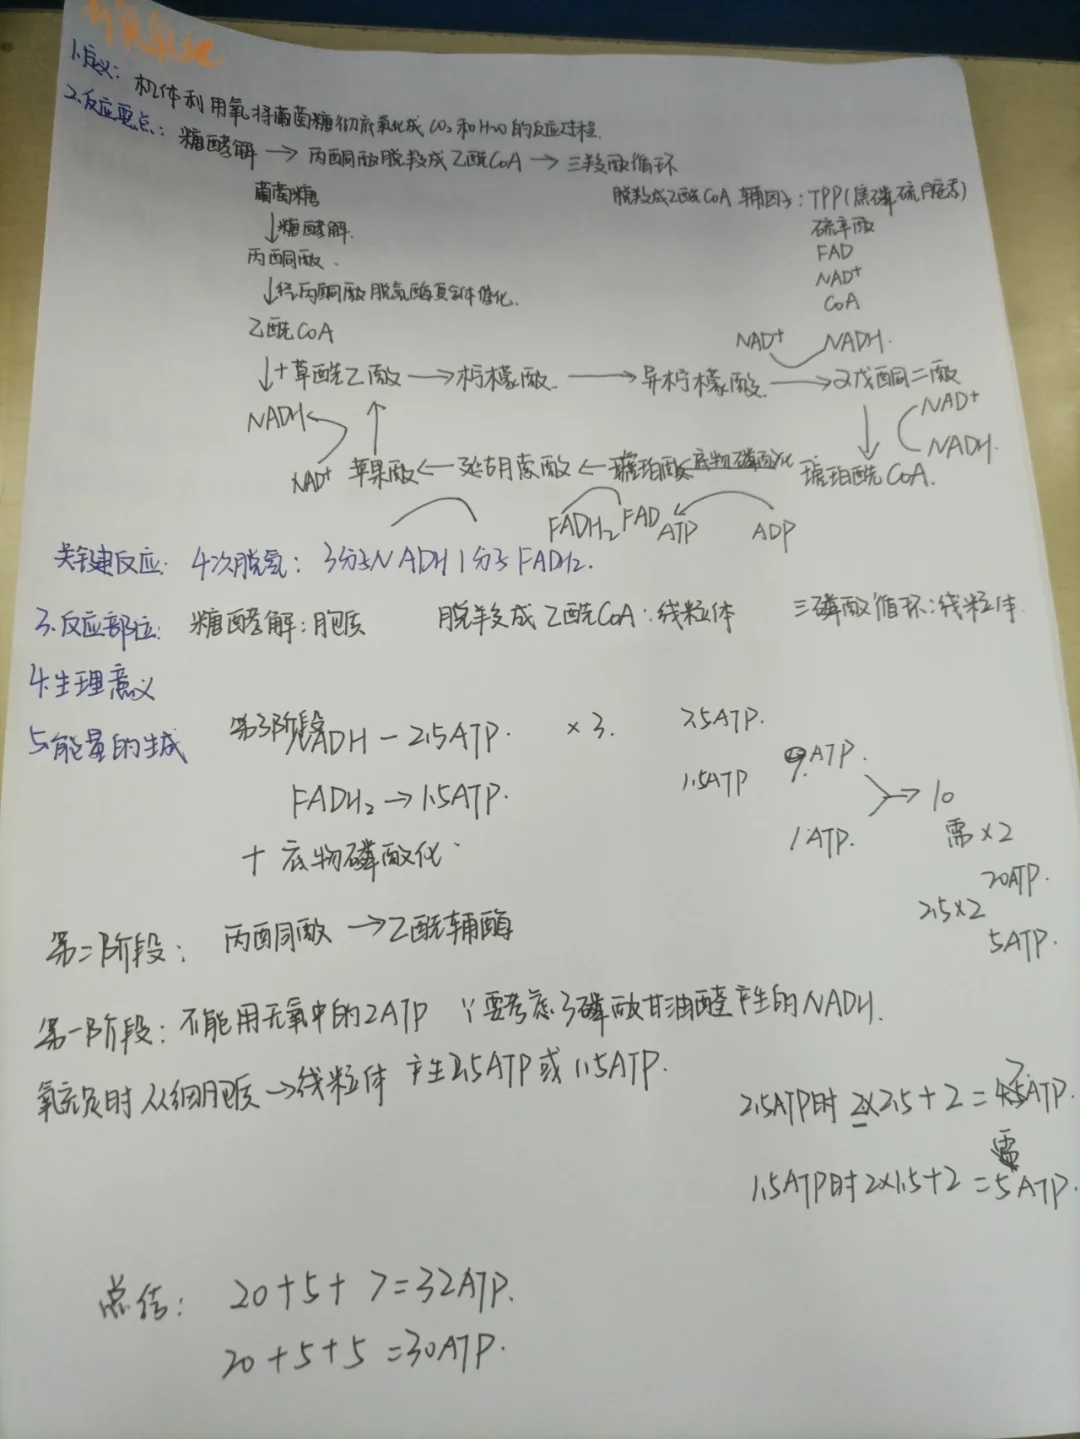 有氧氧化
1.定义: 机体利用氧将葡萄糖彻底氧化成CO₂和H₂O的反应过程.
2.反应要点: 糖酵解 → 丙酮酸脱羧成乙酰CoA → 三羧酸循环
葡萄糖
↓糖酵解.
丙酮酸.
↓经丙酮酸脱氢酶复合体催化.
乙酰CoA
脱羧成乙酰CoA 辅因子: TPP(焦磷硫胺素)
硫辛酸
FAD
NAD⁺
CoA
NAD⁺ NADH.
↓+草酰乙酸 → 柠檬酸. → 异柠檬酸. → α戊酮二酸
NADH NAD⁺
NADH.
NAD⁺ 苹果酸 ← 延胡索酸 ← 琥珀酸 ← 底物磷酸化 琥珀酰CoA.
FADH₂ FAD ATP ADP
关键反应: 4次脱氢: 3分子NADH 1分子FADH₂.
3.反应部位: 糖酵解: 胞质 脱羧成乙酰CoA: 线粒体 三磷酸循环: 线粒体.
4.生理意义
5.能量的生成 第3阶段 NADH - 2.5ATP. ×3. 7.5ATP.
FADH₂ → 1.5ATP. 1.5ATP 9ATP.
→ 10
+ 底物磷酸化. 1ATP. 需×2
20ATP.
第二阶段: 丙酮酸 → 乙酰辅酶 2.5×2
5ATP.
第一阶段: 不能用无氧中的2ATP 需考虑3磷酸甘油醛产生的NADH.
氧充足时 从细胞质 → 线粒体 产生2.5ATP或1.5ATP.
2.5ATP时 2×2.5+2=7ATP.
1.5ATP时 2×1.5+2=5ATP.
总结: 20+5+7=32ATP.
20+5+5=30ATP.